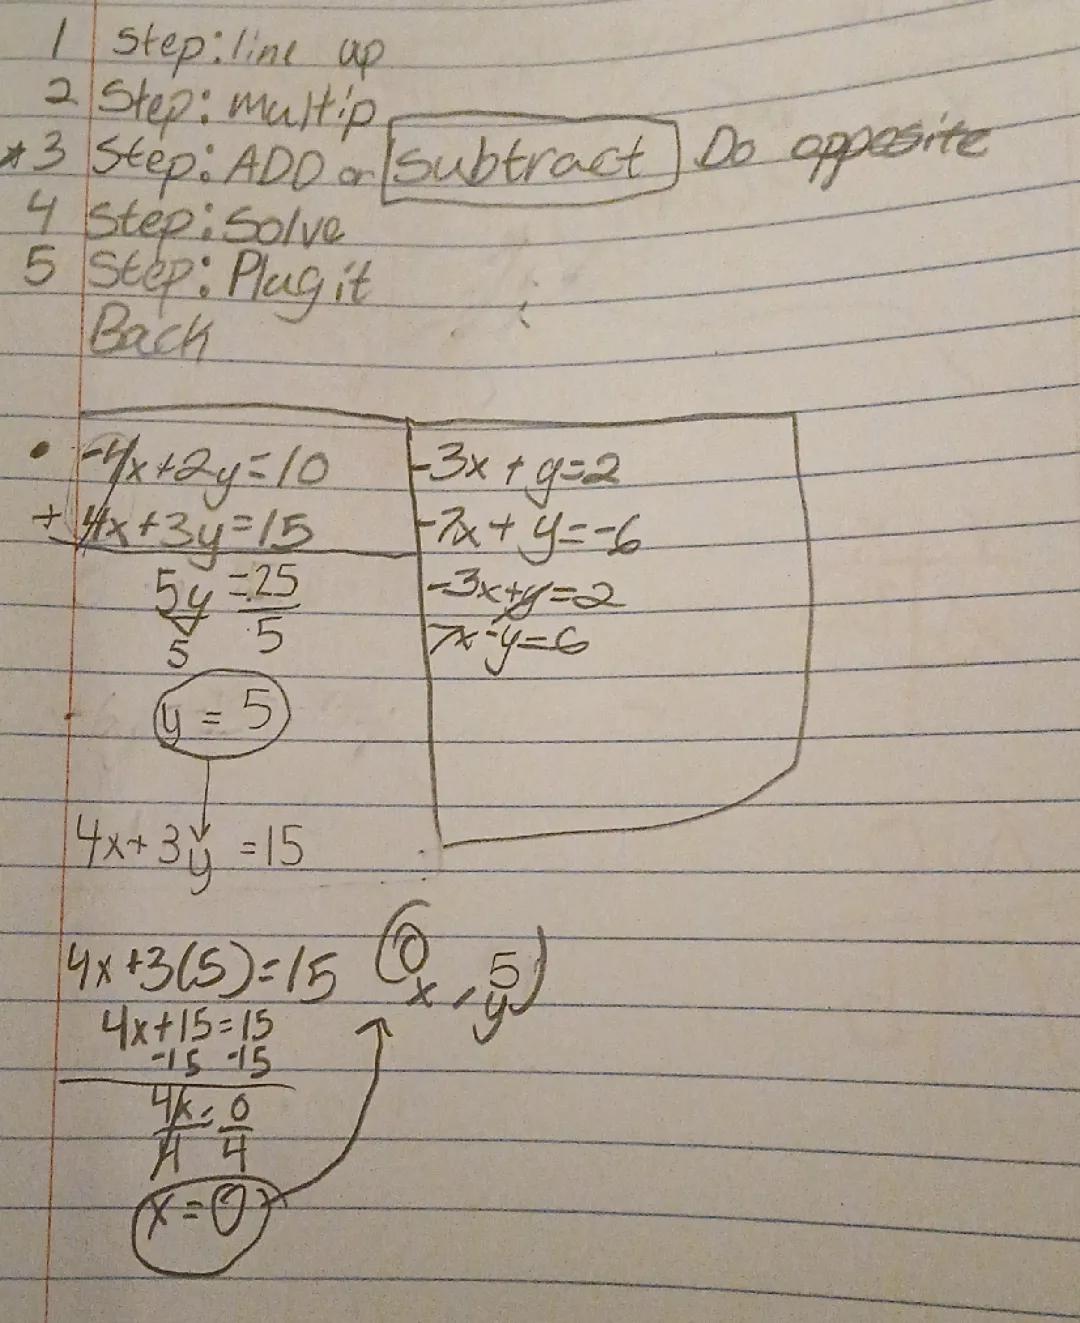 1 Step: line up
2 Step: multip
*3 Step: ADD or Subtract Do opposite
4 Step: Solve
5 Step: Plug it
Back
• -4x+2y=10
+ 4x+3y=15
5y = 25
5 5
y = 5
4x+3y =15
4x+3(5)=15
4x+15=15
-15 -15
4x = 0
4 4
x = 0
(0, 5)
x y
-3x+y=2
-7x+y=-6
-3x+y=2
7x-y=6